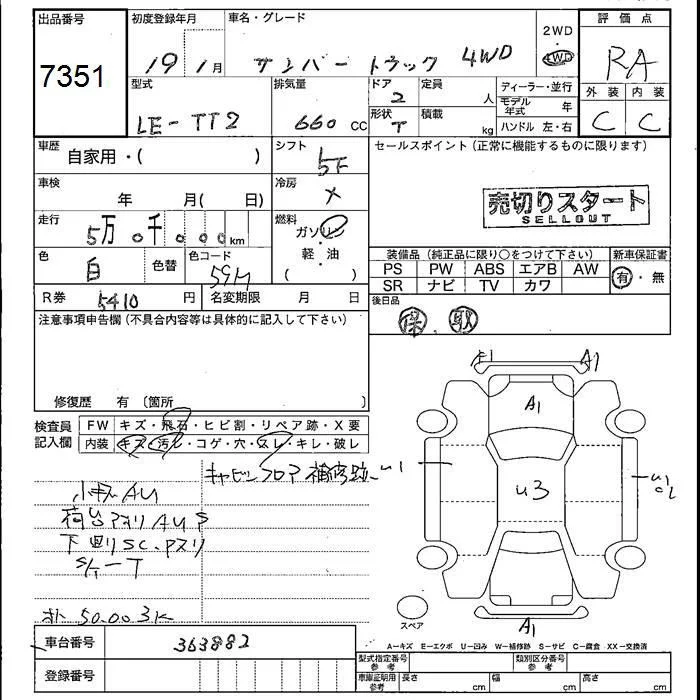 出品番号 7351
初度登録年月 19 1月
車名・グレード サンバートラック 4WD
2WD 4WD
評価点 RA
外装 C 内装 C
型式 LE-TT2
排気量 660 cc
ドア 2
定員 人
形状 T
積載 kg
ディーラー・並行
モデル年式 年
ハンドル 左・右
車歴 自家用・( )
シフト 5F
セールスポイント(正常に機能するものに限ります)
車検 年 月( 日)
冷房 ×
売切りスタート
SELLOUT
走行 5万0千000km
燃料 ガソリン
軽・油
( )
色 白 色替 色コード 59M
装備品(純正品に限り○をつけて下さい) 新車保証書
PS PW ABS エアB AW 有・無
SR ナビ TV カワ
R券 5410円 名変期限 月 日
後日品 保.取
注意事項申告欄(不具合内容等は具体的に記入して下さい)
修復歴 有 〔箇所 〕
検査員記入欄 FW キズ・飛石・ヒビ割・リペア跡・X要
内装 キズ・汚レ・コゲ・穴・スレ・キレ・破レ
キャビンフロア補修跡
小キズAU
荷台アオリAUP
下廻りSC、Pスリ
オト 50.00.3K
A1
A1
U1
U3
U1
A1
スペア
A-キズ E-エクボ U-凹み W-補修跡 S-サビ C-腐食 XX-交換済
車台番号 363882
型式指定番号 参考 類別区分番号 参考
登録番号
車庫証明用 参考 長さ cm 幅 cm 高さ cm